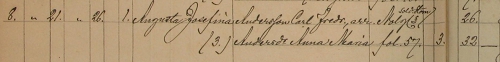 8. " 21. " 26. 1. Augusta Josefina Andersson Carl Fredr., arr. 26.
(3.) Andersdr Anna Maria fol. 57. 3. 32